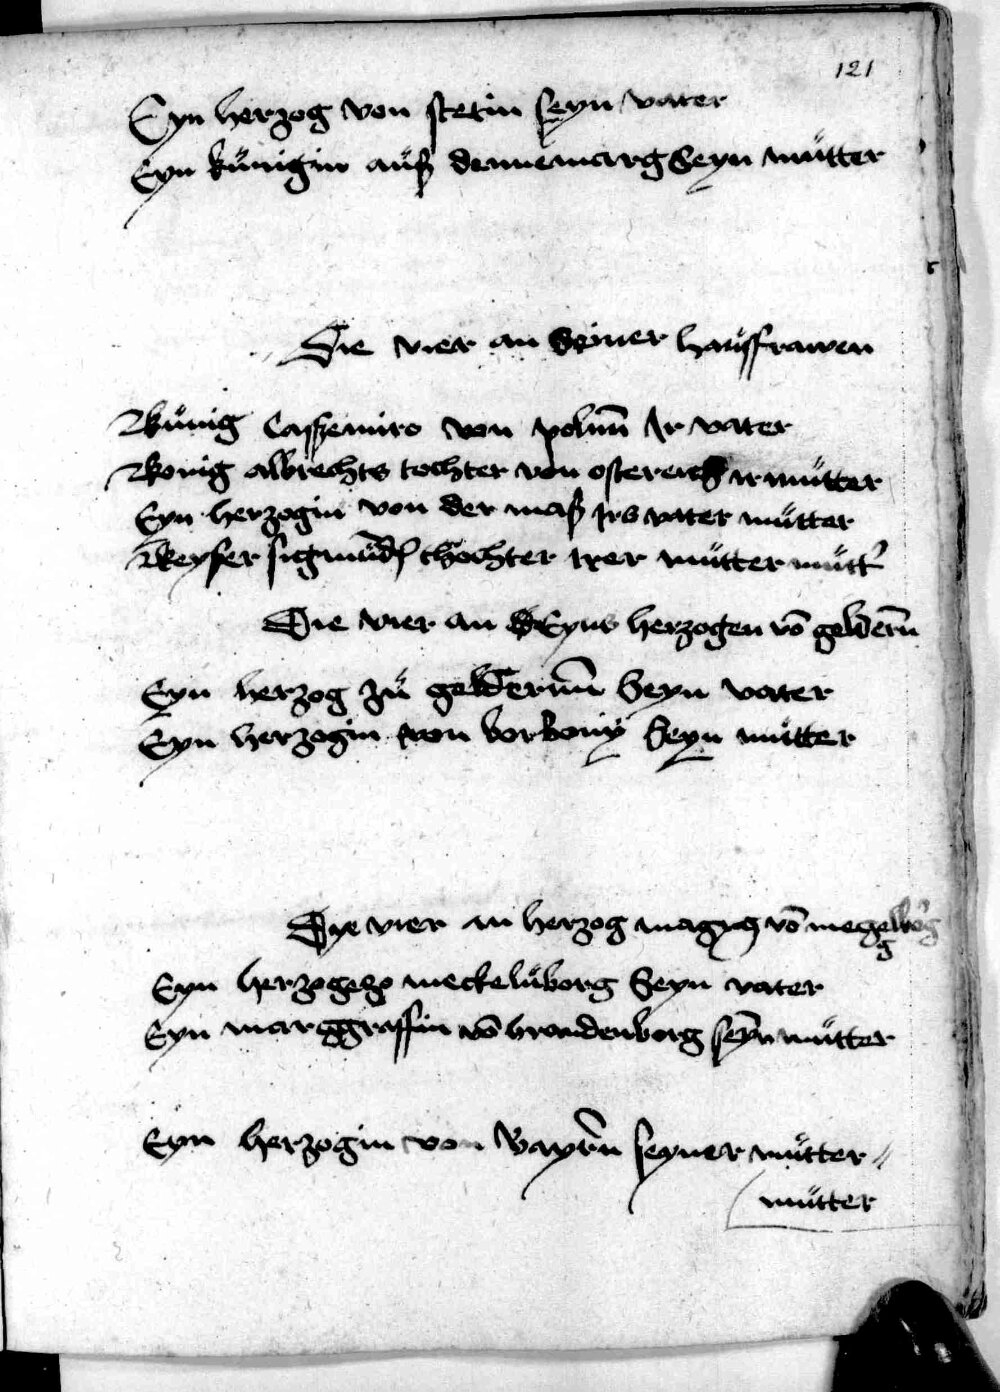 121
Eyn herzog von stetin seyn vater
Eyn künigin auß dennemarg Seyn mütter
Die vier an Seiner haüsfrawen
Künig Casszemiro von polnn Ir vater
Konig albrechts tochter von ostereich ir mütter
Eyn herzogin von der maß Irs vater mütter
Keyser sigmūds thochter irer mütter mütt'
Die vier an Eyns herzogen vō geldern̄
Eyn herzog zü geldernn Seyn vater
Eyn herzogin von borboniy Seyn mütter
Dye vier an herzog vō
Eyn herzog meckelüborg Seyn vater
Eyn marggraffin vō brandenborg seyn mütter
Eyn herzogin von Bayrn̄ seyner mütter //
mütter